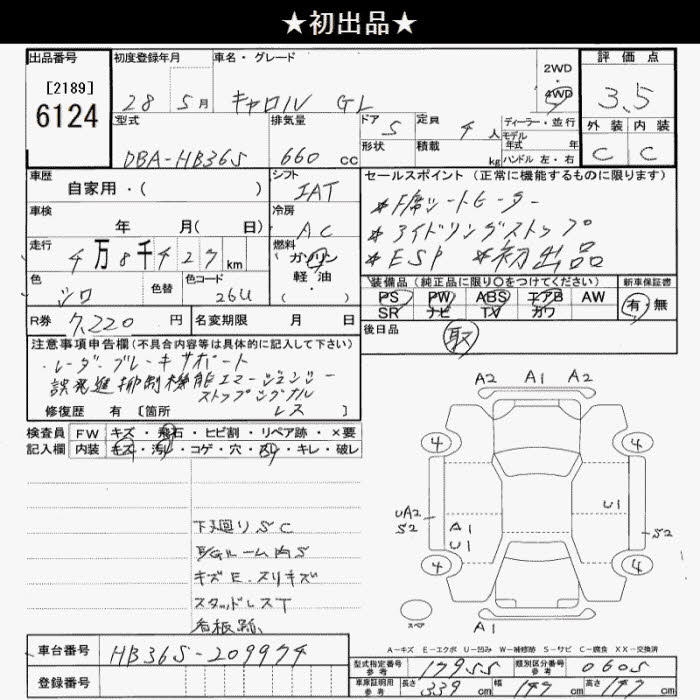 ★初出品★
出品番号
[2189]
6124
初度登録年月
28 5月
車名・グレード
キャロル GL
2WD
4WD
評価点
3.5
型式
DBA-HB36S
排気量
660 cc
ドア
5
定員
4 人
形状
積載
kg
ディーラー・並行
モデル
年式 年
ハンドル 左・右
外装 内装
C C
車歴
自家用・( )
シフト
IAT
セールスポイント(正常に機能するものに限ります)
*F席シートヒーター
*アイドリングストップ
*ESP *初出品
車検
年 月( 日)
冷房
AC
走行
4万8千427km
燃料
ガソリン
軽油
( ・ )
色
シロ
色替
色コード
26U
装備品(純正品に限り○をつけてください)
PS PW ABS エアB AW
SR ナビ TV カワ
新車保証書
有 無
R券
7,220 円
名変期限 月 日
後日品
取
注意事項申告欄(不具合内容等は具体的に記入して下さい)
・レーダーブレーキサポート
誤発進抑制機能エマージェンシー
ストップシグナル
修復歴 有 〔箇所 レス 〕
検査員
記入欄
FW キズ・飛石・ヒビ割・リペア跡・×要
内装 キズ・汚れ・コゲ・穴・スレ・キレ・破レ
下廻りSC
キズE.スリキズ
スタッドレスT
看板跡
A2 A1 A2
4 4
UA2
S2
A1
U1
U1
S2
4 4
スペア
A1
A-キズ E-エクボ U-凹み W-補修跡 S-サビ C-腐食 XX-交換済
車台番号
HB36S-209974
登録番号
型式指定番号
参考
17955
類別区分番号
参考
0605
車庫証明用
参考
長さ 339 cm
幅 147 cm
高さ 147 cm